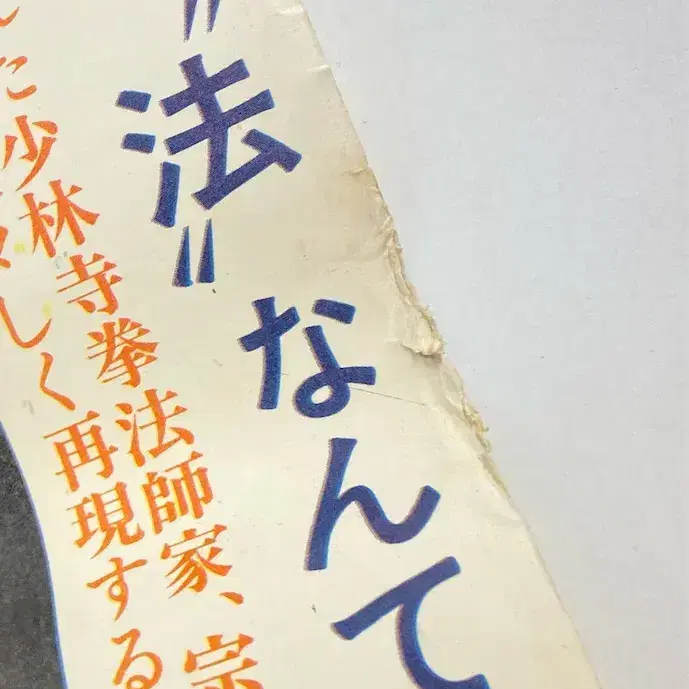 "法"なんて
した少林寺拳法師家、宗
しく再現する